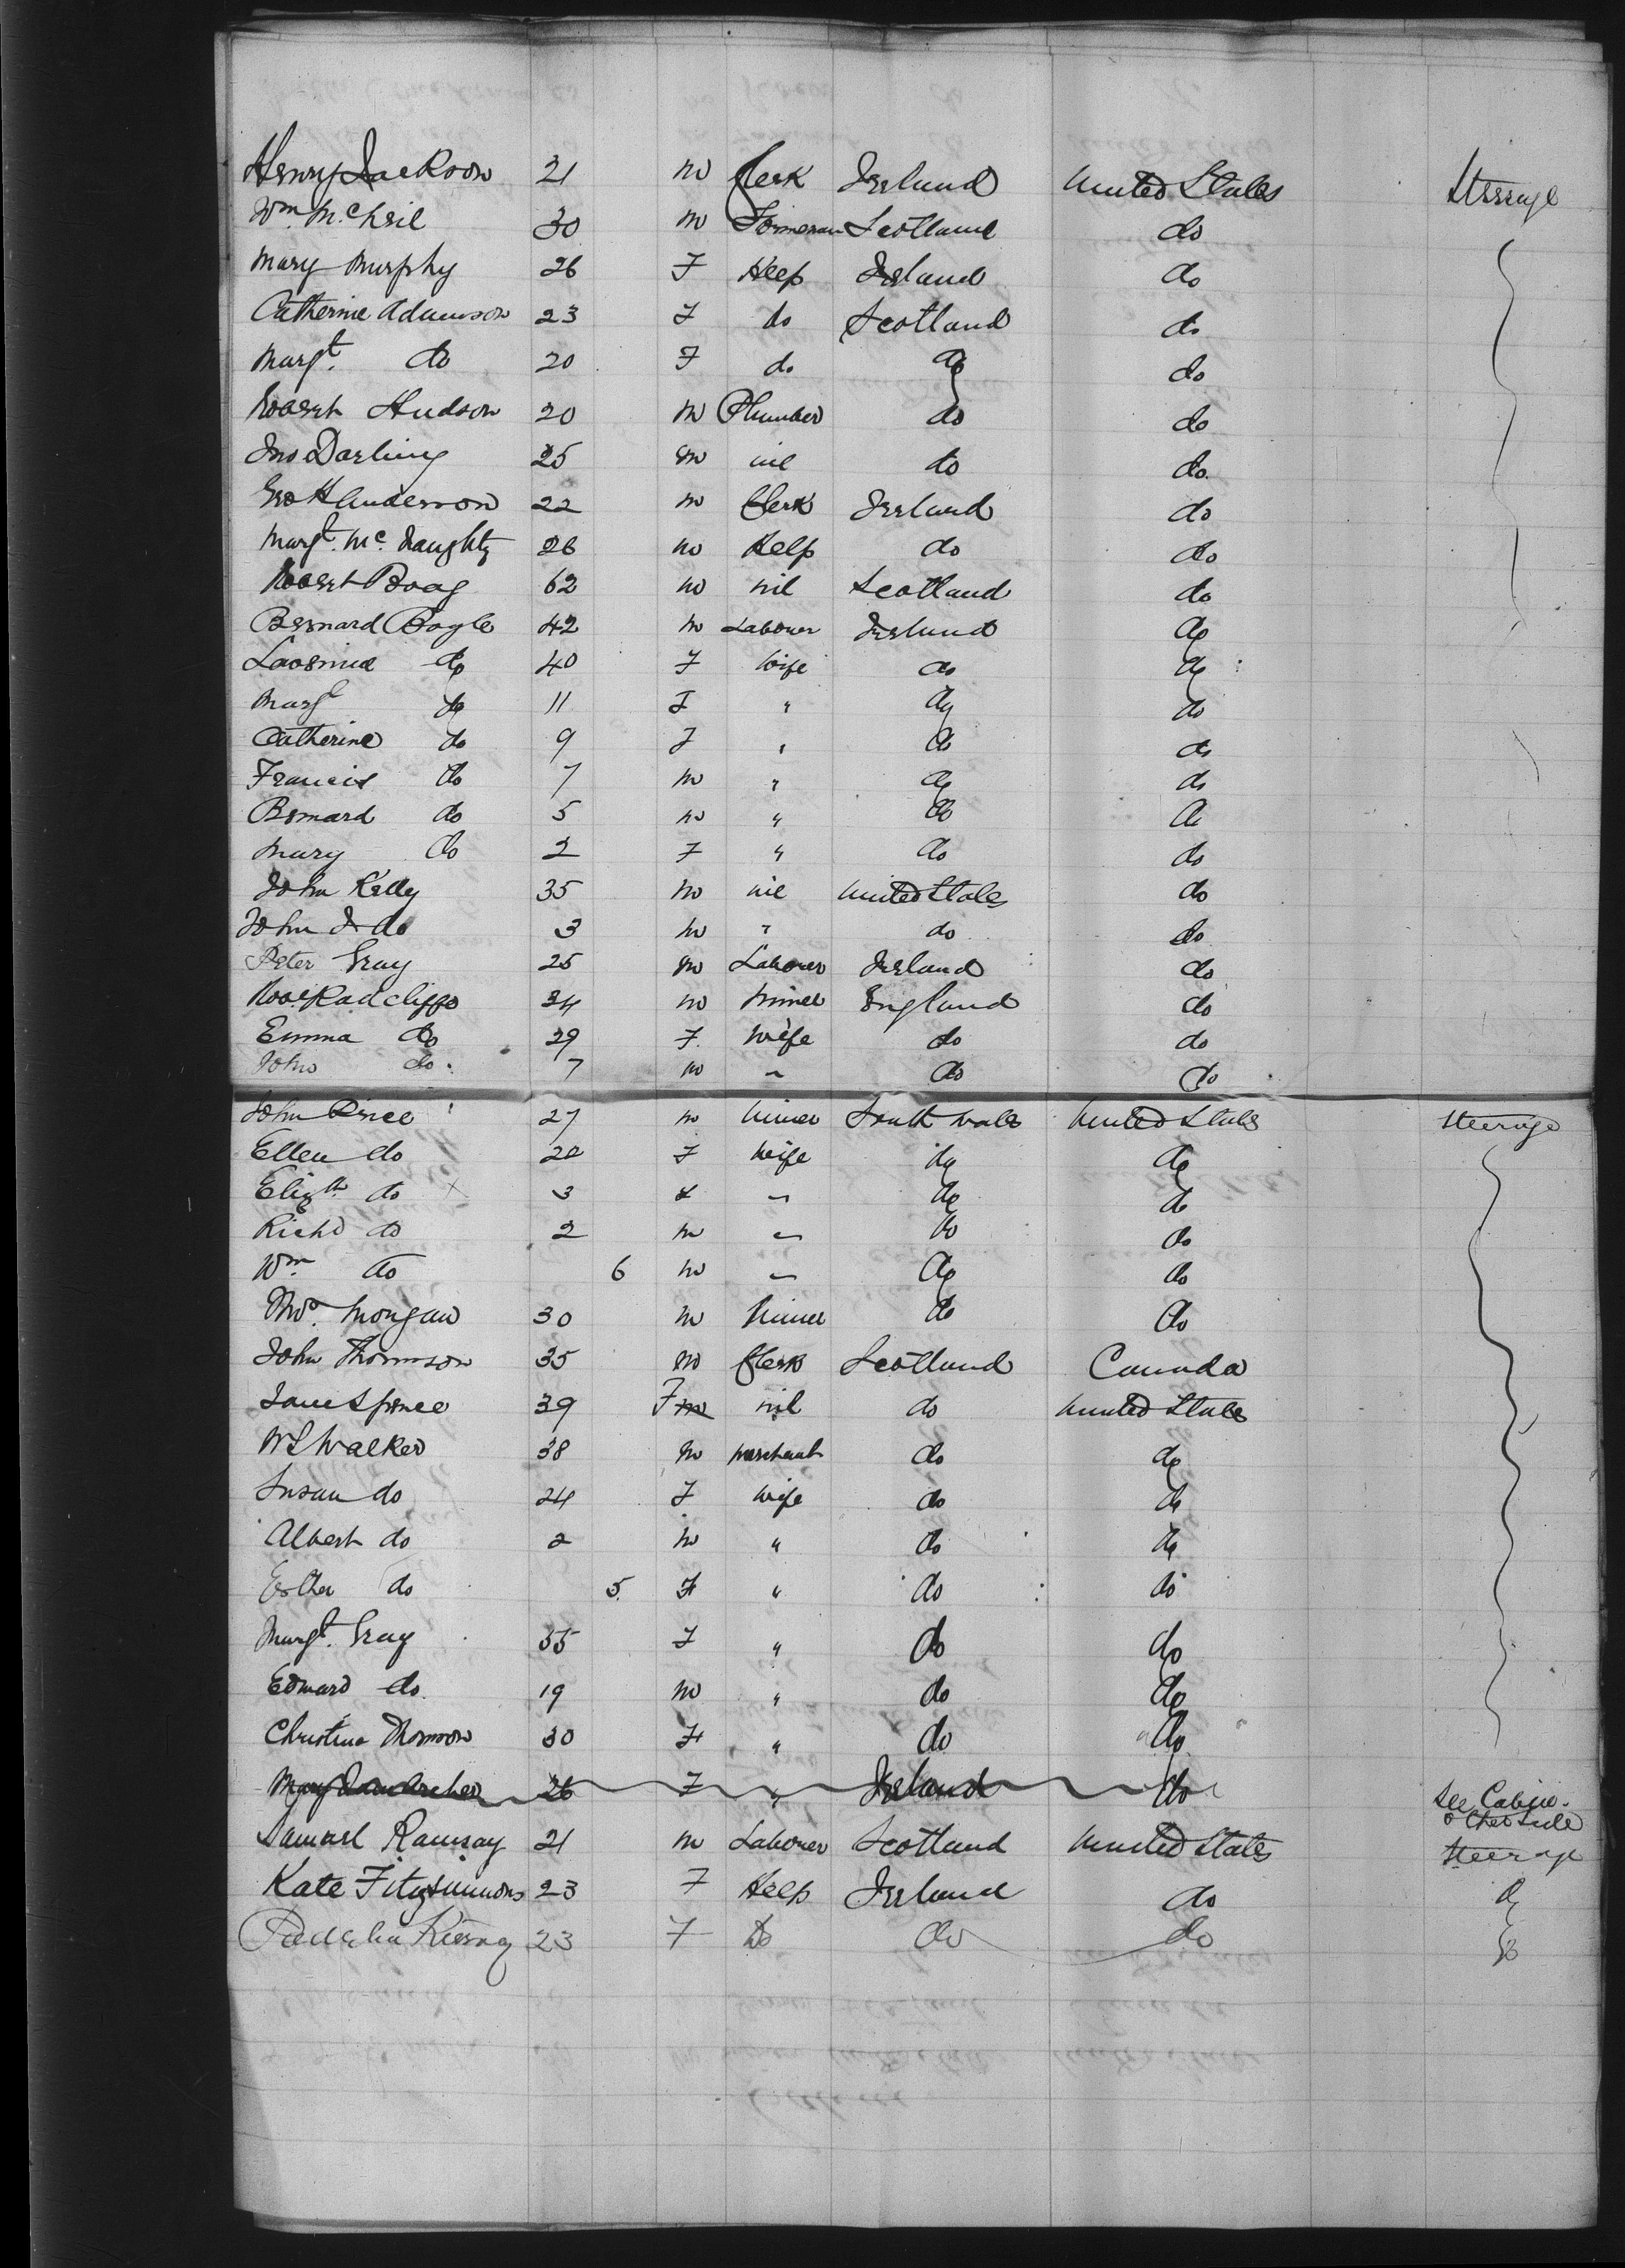 Henry Jackson 21 m Clerk Ireland United States Steerage
Wm. McNeil 30 m Scotland do
Mary Murphy 26 F Help Ireland do
Catherine Adamson 23 F do Scotland do
Margt. do 20 F do do do
Robert Hudson 20 m Plumber do do
Jno Darling 25 m nil do do
Geo H Anderson 22 m Clerk Ireland do
Margt. Mc. 26 m Help do do
Robert Boag 62 m nil Scotland do
Bernard Boyle 42 m Labourer Ireland do
do 40 F Wife do do
Margt do 11 F " do do
Catherine do 9 F " do do
Francis do 7 m " do do
Bernard do 5 m " do do
Mary do 2 F " do do
John Kelly 35 m nil United States do
John J do 3 m " do do
Peter Gray 25 m Labourer Ireland do
Robt Radcliffe 34 m Miner England do
Emma do 29 F Wife do do
John do 7 m " do do
John 27 m Miner South Wales United States Steerage
Ellen do 22 F Wife do do
Elizth do 3 F " do do
Richd do 2 m " do do
Wm do 6 m " do do
Thos. Morgan 30 m Miner do do
John Thomson 35 m Clerk Scotland Canada
Jane Spence 39 F m nil do United States
W S Walker 38 m Merchant do do
Susan do 24 F Wife do do
Albert do 2 m " do do
Esther do 5 F " do do
Margt. Gray 35 F " do do
Edward do 19 m " do do
Christina Thomson 30 F " do do
Mary Archer 26 F " Ireland do See Cabin
other side
Samuel Ramsay 21 m Labourer Scotland United States Steerage
Kate Fitzsimmons 23 F Help Ireland do do
23 F Do do do do